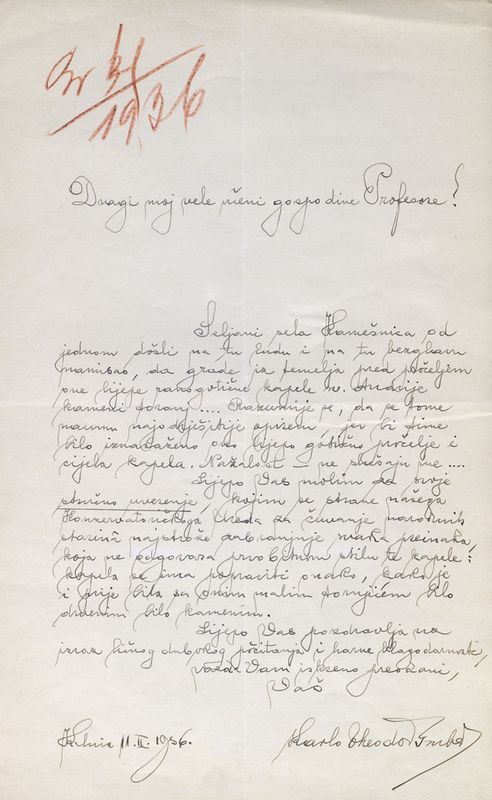 Br 31
1936
Dragi moj vele učeni gospodine Profesore!
Seljani sela Kamešnica od
jednom došli na tu ludu i na tu
namisao, da grade iz temelja pred pročeljem
one lijepe ranogotične kapele sv. Andrije
kameni toranj .... Razumije se, da se tome
naumu najodlučnije opirem - jer bi time
bilo iznakaženo ono lijepo gotično pročelje i
cijela kapela. Nažalost - ne slušaju me ....
Lijepo Vas molim za svoje
stručno uvjerenje, kojim se strane našega
Konzervatoričkoga Ureda za čuvanje narodnih
starina najstrože zabranjuje svaka preinaka,
koja ne odgovara prvobitnom stilu te kapele:
kapela se ima popraviti onako, kako je
i prije bila sa onim malim tornjićem bilo
drvenim bilo kamenim.
Lijepo Vas pozdravlja uz
izraz ličnog dubokog poštovanja i harne blagodarnosti,
vazda Vam iskreno preodani,
Vaš
Kalnik 11.II. 1936.
Karlo Theodor